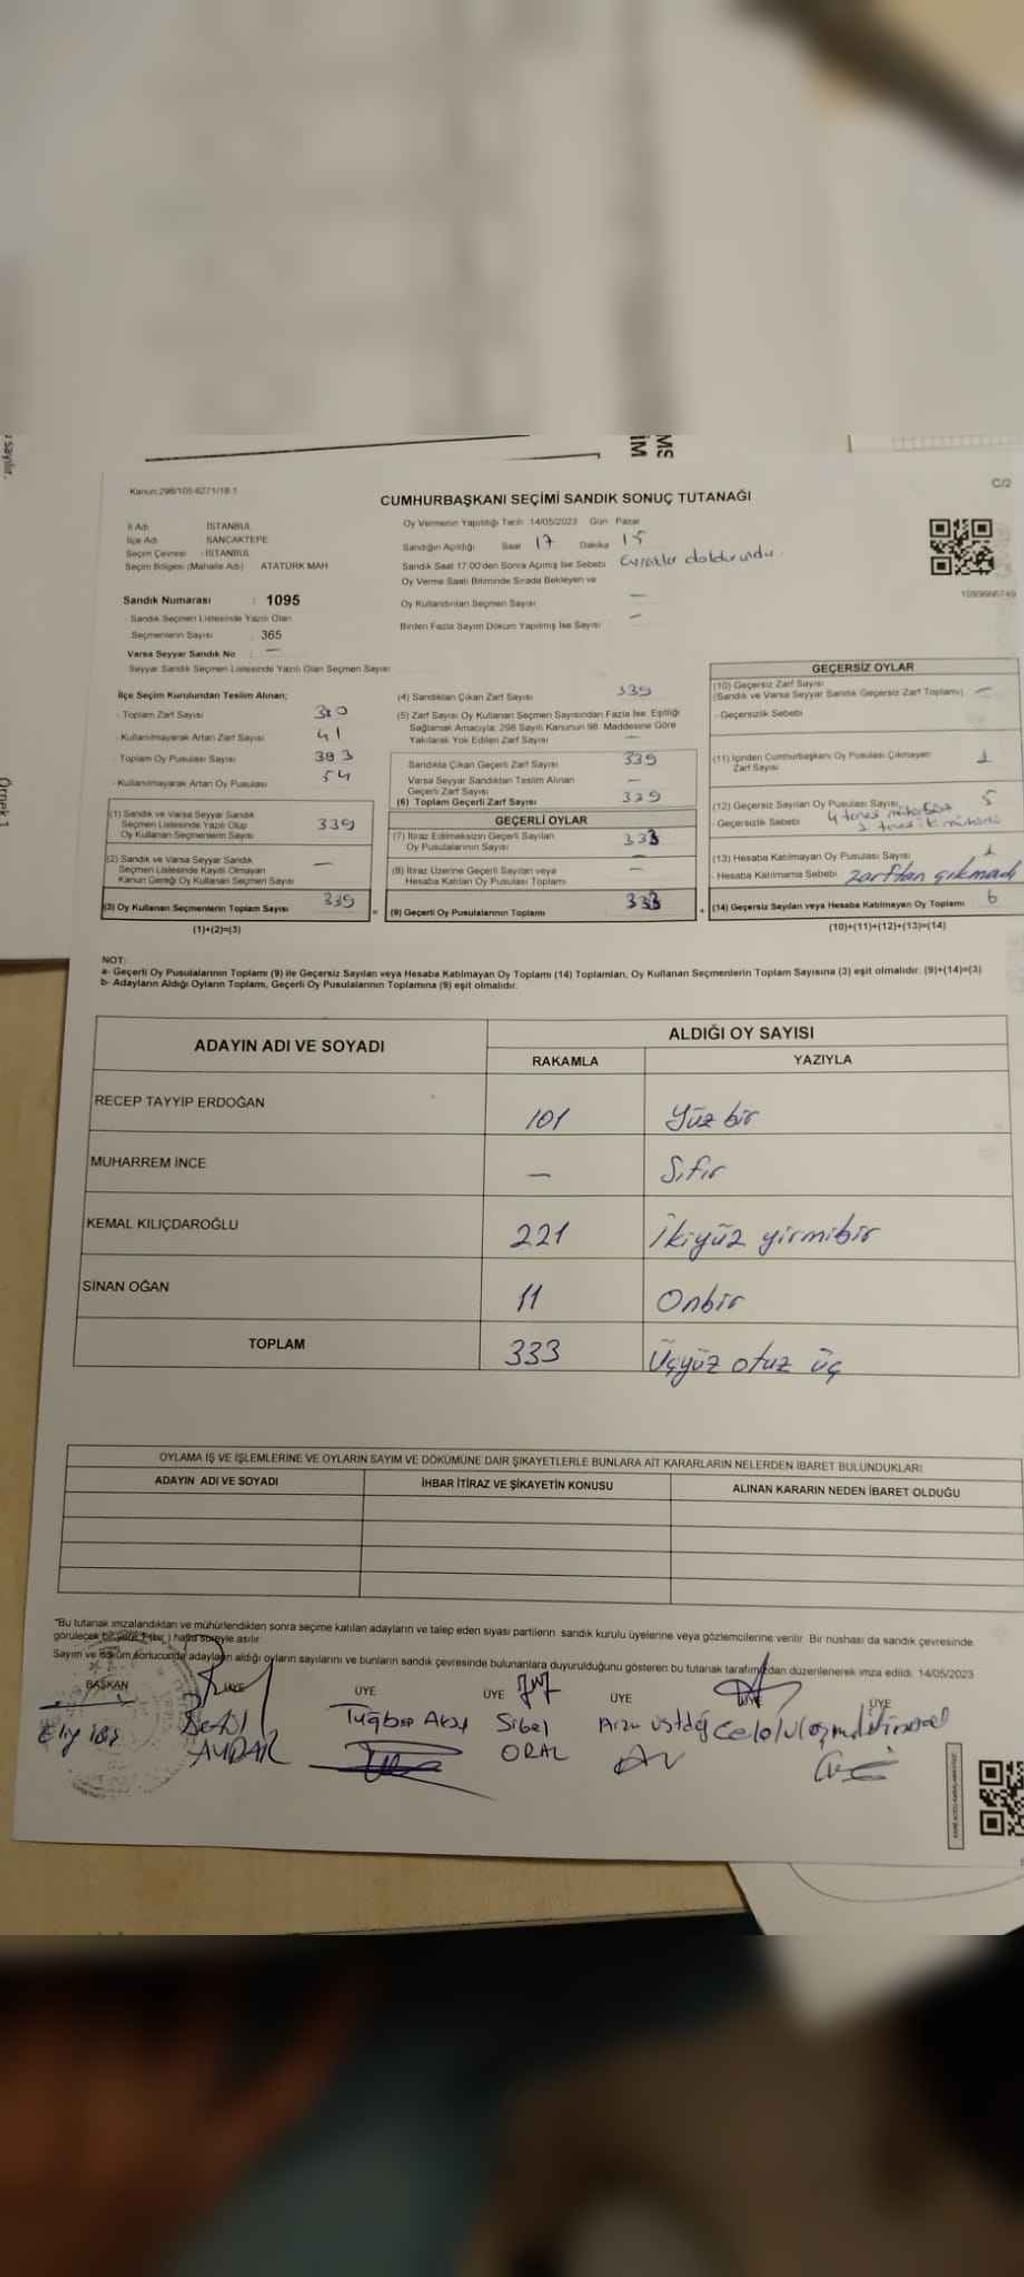 ı sayılır.
ÖRNEK 1
Kanun:298/105-6271/18.1
C/2
CUMHURBAŞKANI SEÇİMİ SANDIK SONUÇ TUTANAĞI
İl Adı İSTANBUL
İlçe Adı SANCAKTEPE
Seçim Çevresi : İSTANBUL
Seçim Bölgesi (Mahalle Adı) ATATÜRK MAH
Sandık Numarası : 1095
- Sandık Seçmen Listesinde Yazılı Olan
Seçmenlerin Sayısı : 365
Varsa Seyyar Sandık No : —
Seyyar Sandık Seçmen Listesinde Yazılı Olan Seçmen Sayısı
Oy Vermenin Yapıldığı Tarih :14/05/2023 Gün : Pazar
Sandığın Açıldığı Saat 17 Dakika 15
Sandık Saat 17.00'den Sonra Açılmış İse Sebebi Evraklar dolduruldu
Oy Verme Saati Bitiminde Sırada Bekleyen ve
Oy Kullandırılan Seçmen Sayısı —
Birden Fazla Sayım Döküm Yapılmış İse Sayısı —
İlçe Seçim Kurulundan Teslim Alınan;
- Toplam Zarf Sayısı 380
- Kullanılmayarak Artan Zarf Sayısı 41
- Toplam Oy Pusulası Sayısı 393
- Kullanılmayarak Artan Oy Pusulası 54
(1) Sandık ve Varsa Seyyar Sandık
Seçmen Listesinde Yazılı Olup
Oy Kullanan Seçmenlerin Sayısı 339
(2) Sandık ve Varsa Seyyar Sandık
Seçmen Listesinde Kayıtlı Olmayan
Kanun Gereği Oy Kullanan Seçmen Sayısı —
(3) Oy Kullanan Seçmenlerin Toplam Sayısı 339
(1)+(2)=(3)
(4) Sandıktan Çıkan Zarf Sayısı 339
(5) Zarf Sayısı Oy Kullanan Seçmen Sayısından Fazla İse, Eşitliği
Sağlamak Amacıyla; 298 Sayılı Kanunun 98. Maddesine Göre
Yakılarak Yok Edilen Zarf Sayısı —
Sandıkta Çıkan Geçerli Zarf Sayısı 339
Varsa Seyyar Sandıktan Teslim Alınan
Geçerli Zarf Sayısı —
(6) Toplam Geçerli Zarf Sayısı 339
GEÇERLİ OYLAR
(7) İtiraz Edilmeksizin Geçerli Sayılan
Oy Pusulalarının Sayısı 333
(8) İtiraz Üzerine Geçerli Sayılan veya
Hesaba Katılan Oy Pusulası Toplamı —
(9) Geçerli Oy Pusulalarının Toplamı 333
GEÇERSİZ OYLAR
(10) Geçersiz Zarf Sayısı
(Sandık ve Varsa Seyyar Sandık Geçersiz Zarf Toplamı) —
- Geçersizlik Sebebi
(11) İçinden Cumhurbaşkanı Oy Pusulası Çıkmayan
Zarf Sayısı 1
(12) Geçersiz Sayılan Oy Pusulası Sayısı 5
- Geçersizlik Sebebi 4 tanesi
(13) Hesaba Katılmayan Oy Pusulası Sayısı 1
- Hesaba Katılmama Sebebi zarftan çıkmadı
(14) Geçersiz Sayılan veya Hesaba Katılmayan Oy Toplamı 6
(10)+(11)+(12)+(13)=(14)
NOT:
a- Geçerli Oy Pusulalarının Toplamı (9) ile Geçersiz Sayılan veya Hesaba Katılmayan Oy Toplamı (14) Toplamları, Oy Kullanan Seçmenlerin Toplam Sayısına (3) eşit olmalıdır. (9)+(14)=(3)
b- Adayların Aldığı Oyların Toplamı, Geçerli Oy Pusulalarının Toplamına (9) eşit olmalıdır.
ADAYIN ADI VE SOYADI
ALDIĞI OY SAYISI
RAKAMLA YAZIYLA
RECEP TAYYİP ERDOĞAN 101 Yüz bir
MUHARREM İNCE — Sıfır
KEMAL KILIÇDAROĞLU 221 İkiyüz yirmibir
SİNAN OĞAN 11 Onbir
TOPLAM 333 Üçyüz otuz üç
OYLAMA İŞ VE İŞLEMLERİNE VE OYLARIN SAYIM VE DÖKÜMÜNE DAİR ŞİKAYETLERLE BUNLARA AİT KARARLARIN NELERDEN İBARET BULUNDUKLARI
ADAYIN ADI VE SOYADI İHBAR İTİRAZ VE ŞİKAYETİN KONUSU ALINAN KARARIN NEDEN İBARET OLDUĞU
"Bu tutanak imzalandıktan ve mühürlendikten sonra seçime katılan adayların ve talep eden siyasi partilerin sandık kurulu üyelerine veya gözlemcilerine verilir. Bir nüshası da sandık çevresinde
görülecek bir yere 1 (bir) hafta süreyle asılır.
Sayım ve döküm sonucunda adayların aldığı oyların sayılarını ve bunların sandık çevresinde bulunanlara duyurulduğunu gösteren bu tutanak tarafımızdan düzenlenerek imza edildi. 14/05/2023
BAŞKAN ÜYE ÜYE ÜYE ÜYE ÜYE ÜYE
AYDAR
Sibel
ORAL